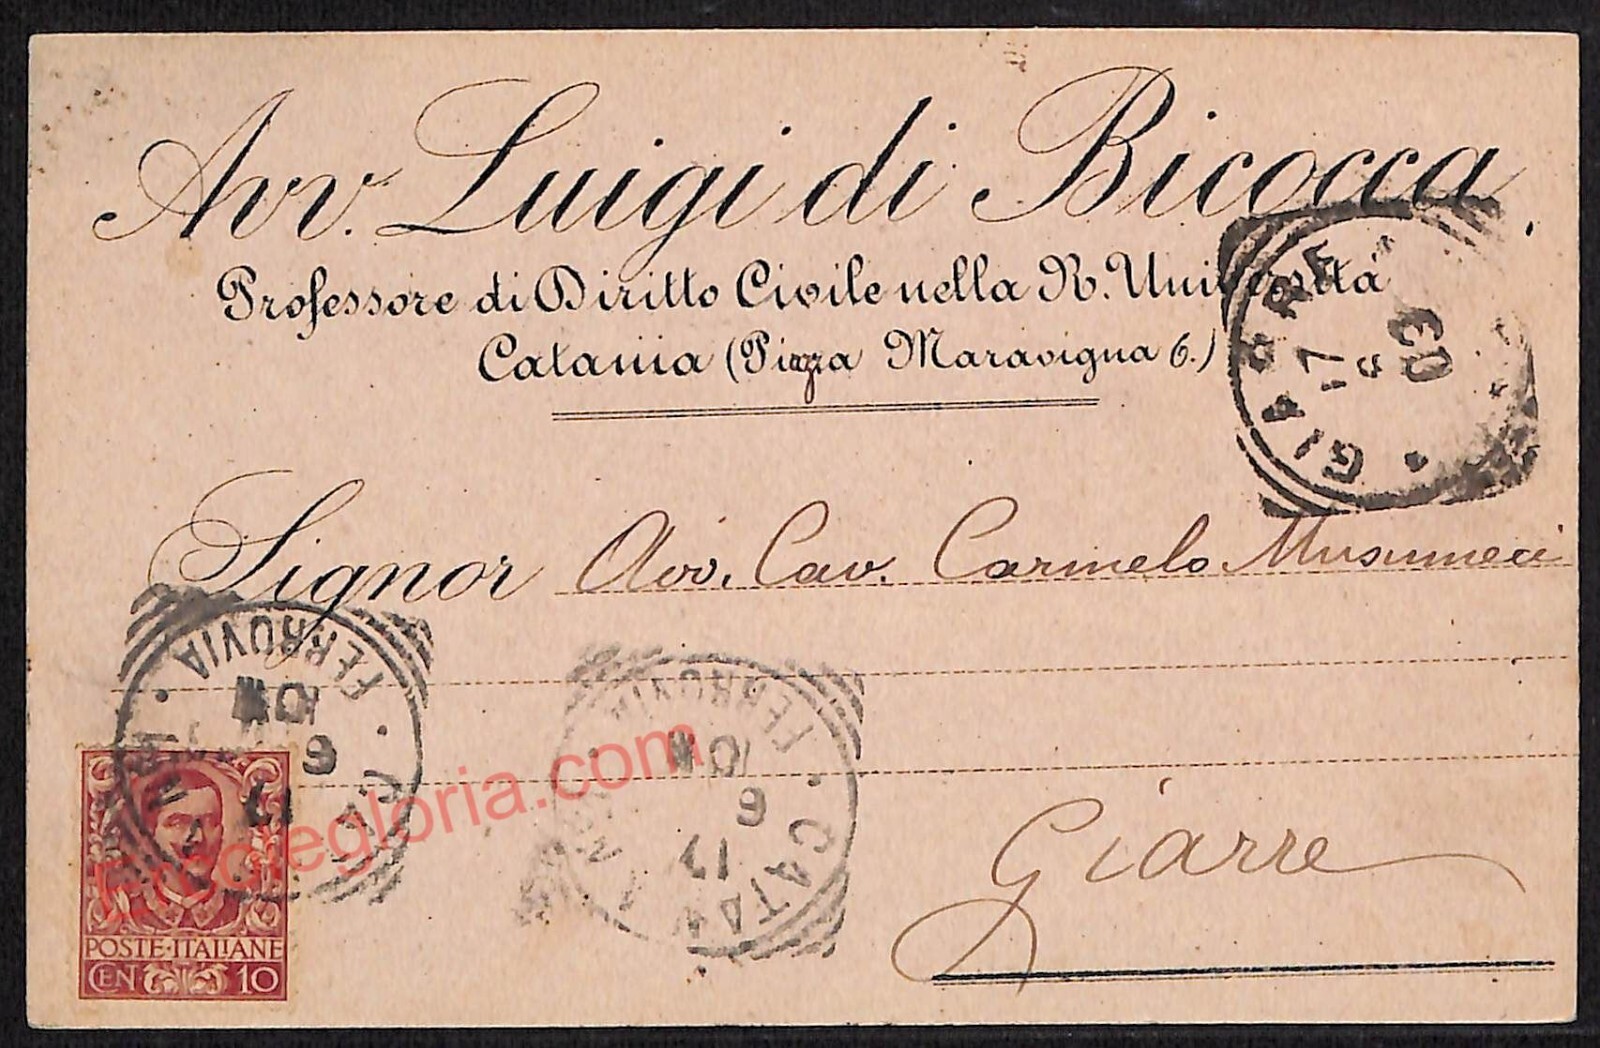 Avv. Luigi di Bicocca
Professore di Diritto Civile nella R. Università
Catania (Piazza Maravigna 6.)
GIARRE
17
6
03
Signor Avv. Cav. Carmelo Musumeci
FERROVIA
6
17
CATANIA
FERROVIA
6
17
Giarre
POSTE·ITALIANE
CEN 10
Ercolegloria.com